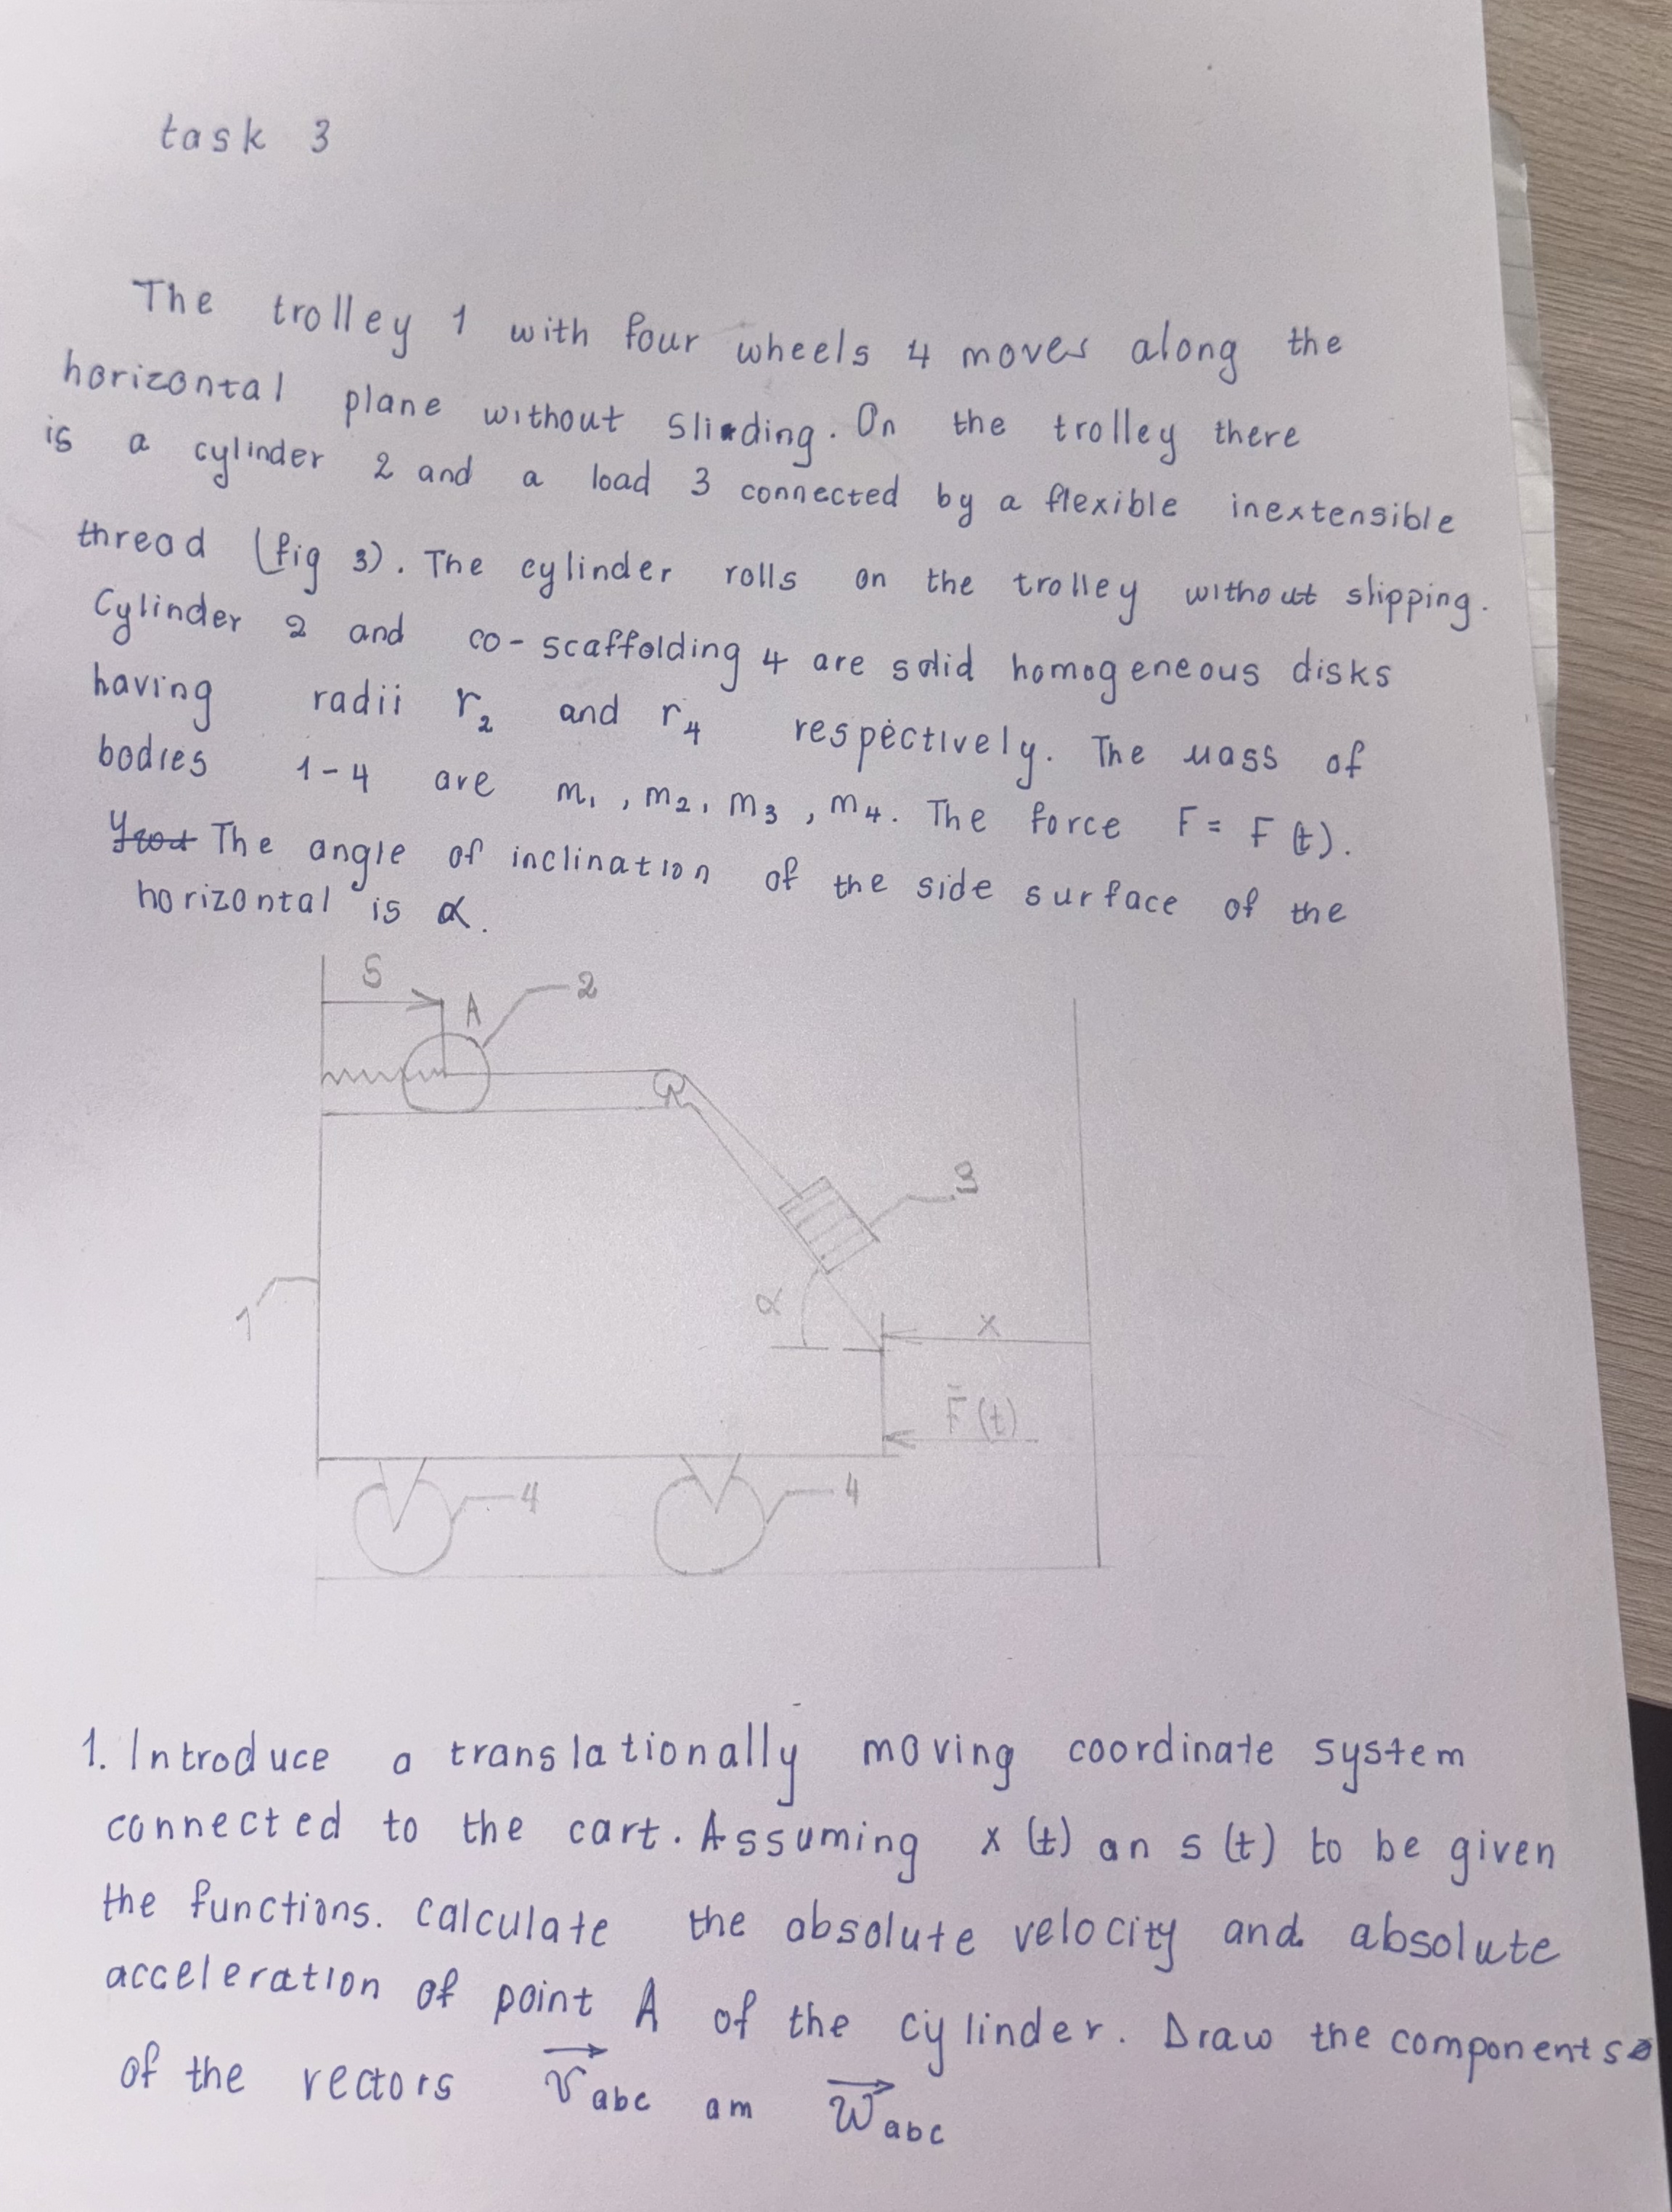 task 3
The trolley 1 with four wheels 4 moves along the
horizontal plane without sliding. On the trolley there
is a cylinder 2 and a load 3 connected by a flexible inextensible
thread (fig 3). The cylinder rolls on the trolley without slipping.
Cylinder 2 and co-scaffolding 4 are solid homogeneous disks
having radii r₂ and r₄ respectively. The mass of
bodies 1-4 are m₁, m₂, m₃, m₄. The force F = F(t).
The angle of inclination of the side surface of the
horizontal is α.
S
A
2
3
1
α
x
F̄(t)
4
4
1. Introduce a translationally moving coordinate system
connected to the cart. Assuming x(t) an s(t) to be given
the functions. Calculate the absolute velocity and absolute
acceleration of point A of the cylinder. Draw the components
of the vectors v⃗abc am w⃗abc